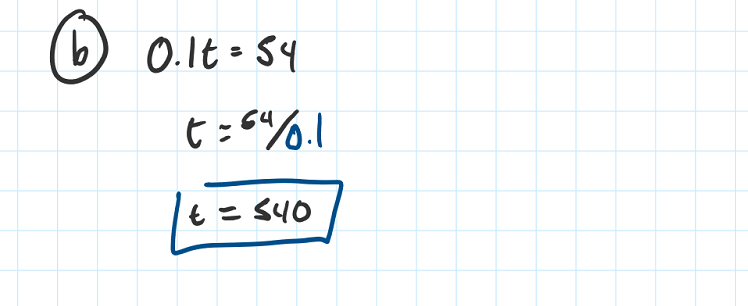 b 0.1t = 54
t = 54/0.1
t = 540